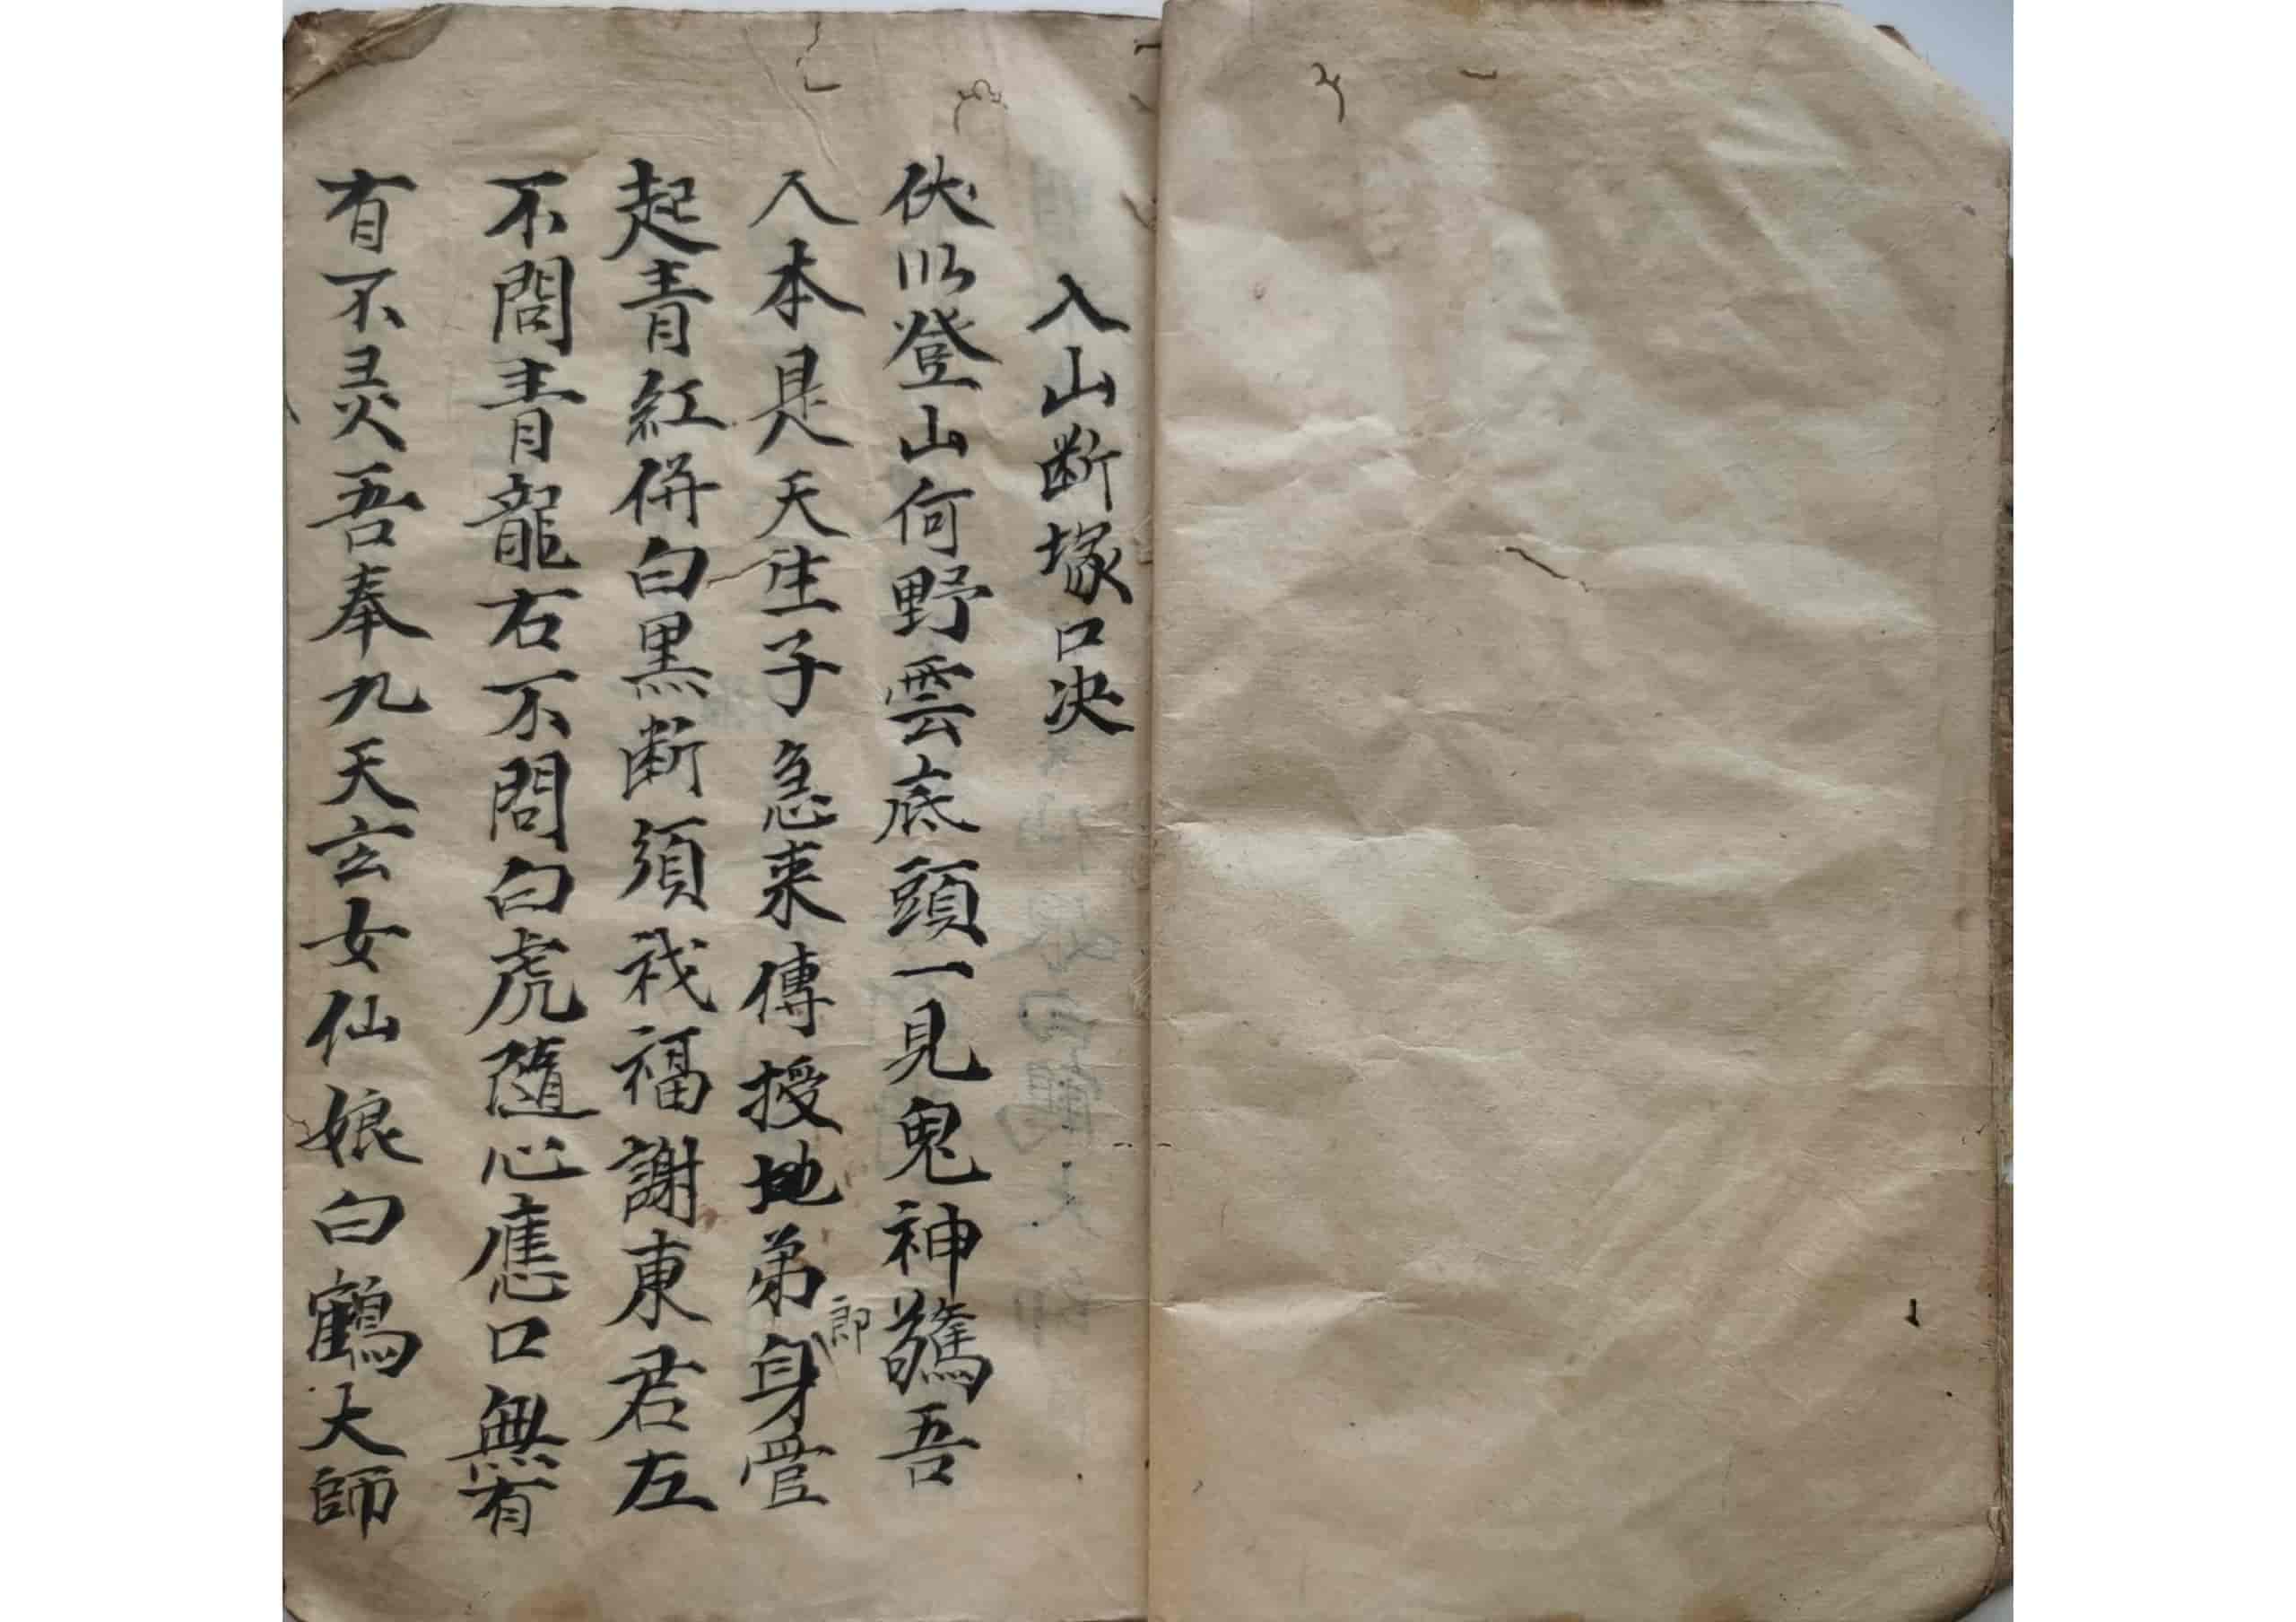 入山断塚口决
伏以登山何野雲底頭一見鬼神驚吾
人本是天生子急来傳授地弟郎身管
起青紅併白黑断須我福謝東君左
不問青龍右不問白虎隨心應口無有
有不灵吾奉九天玄女仙娘白鶴大師